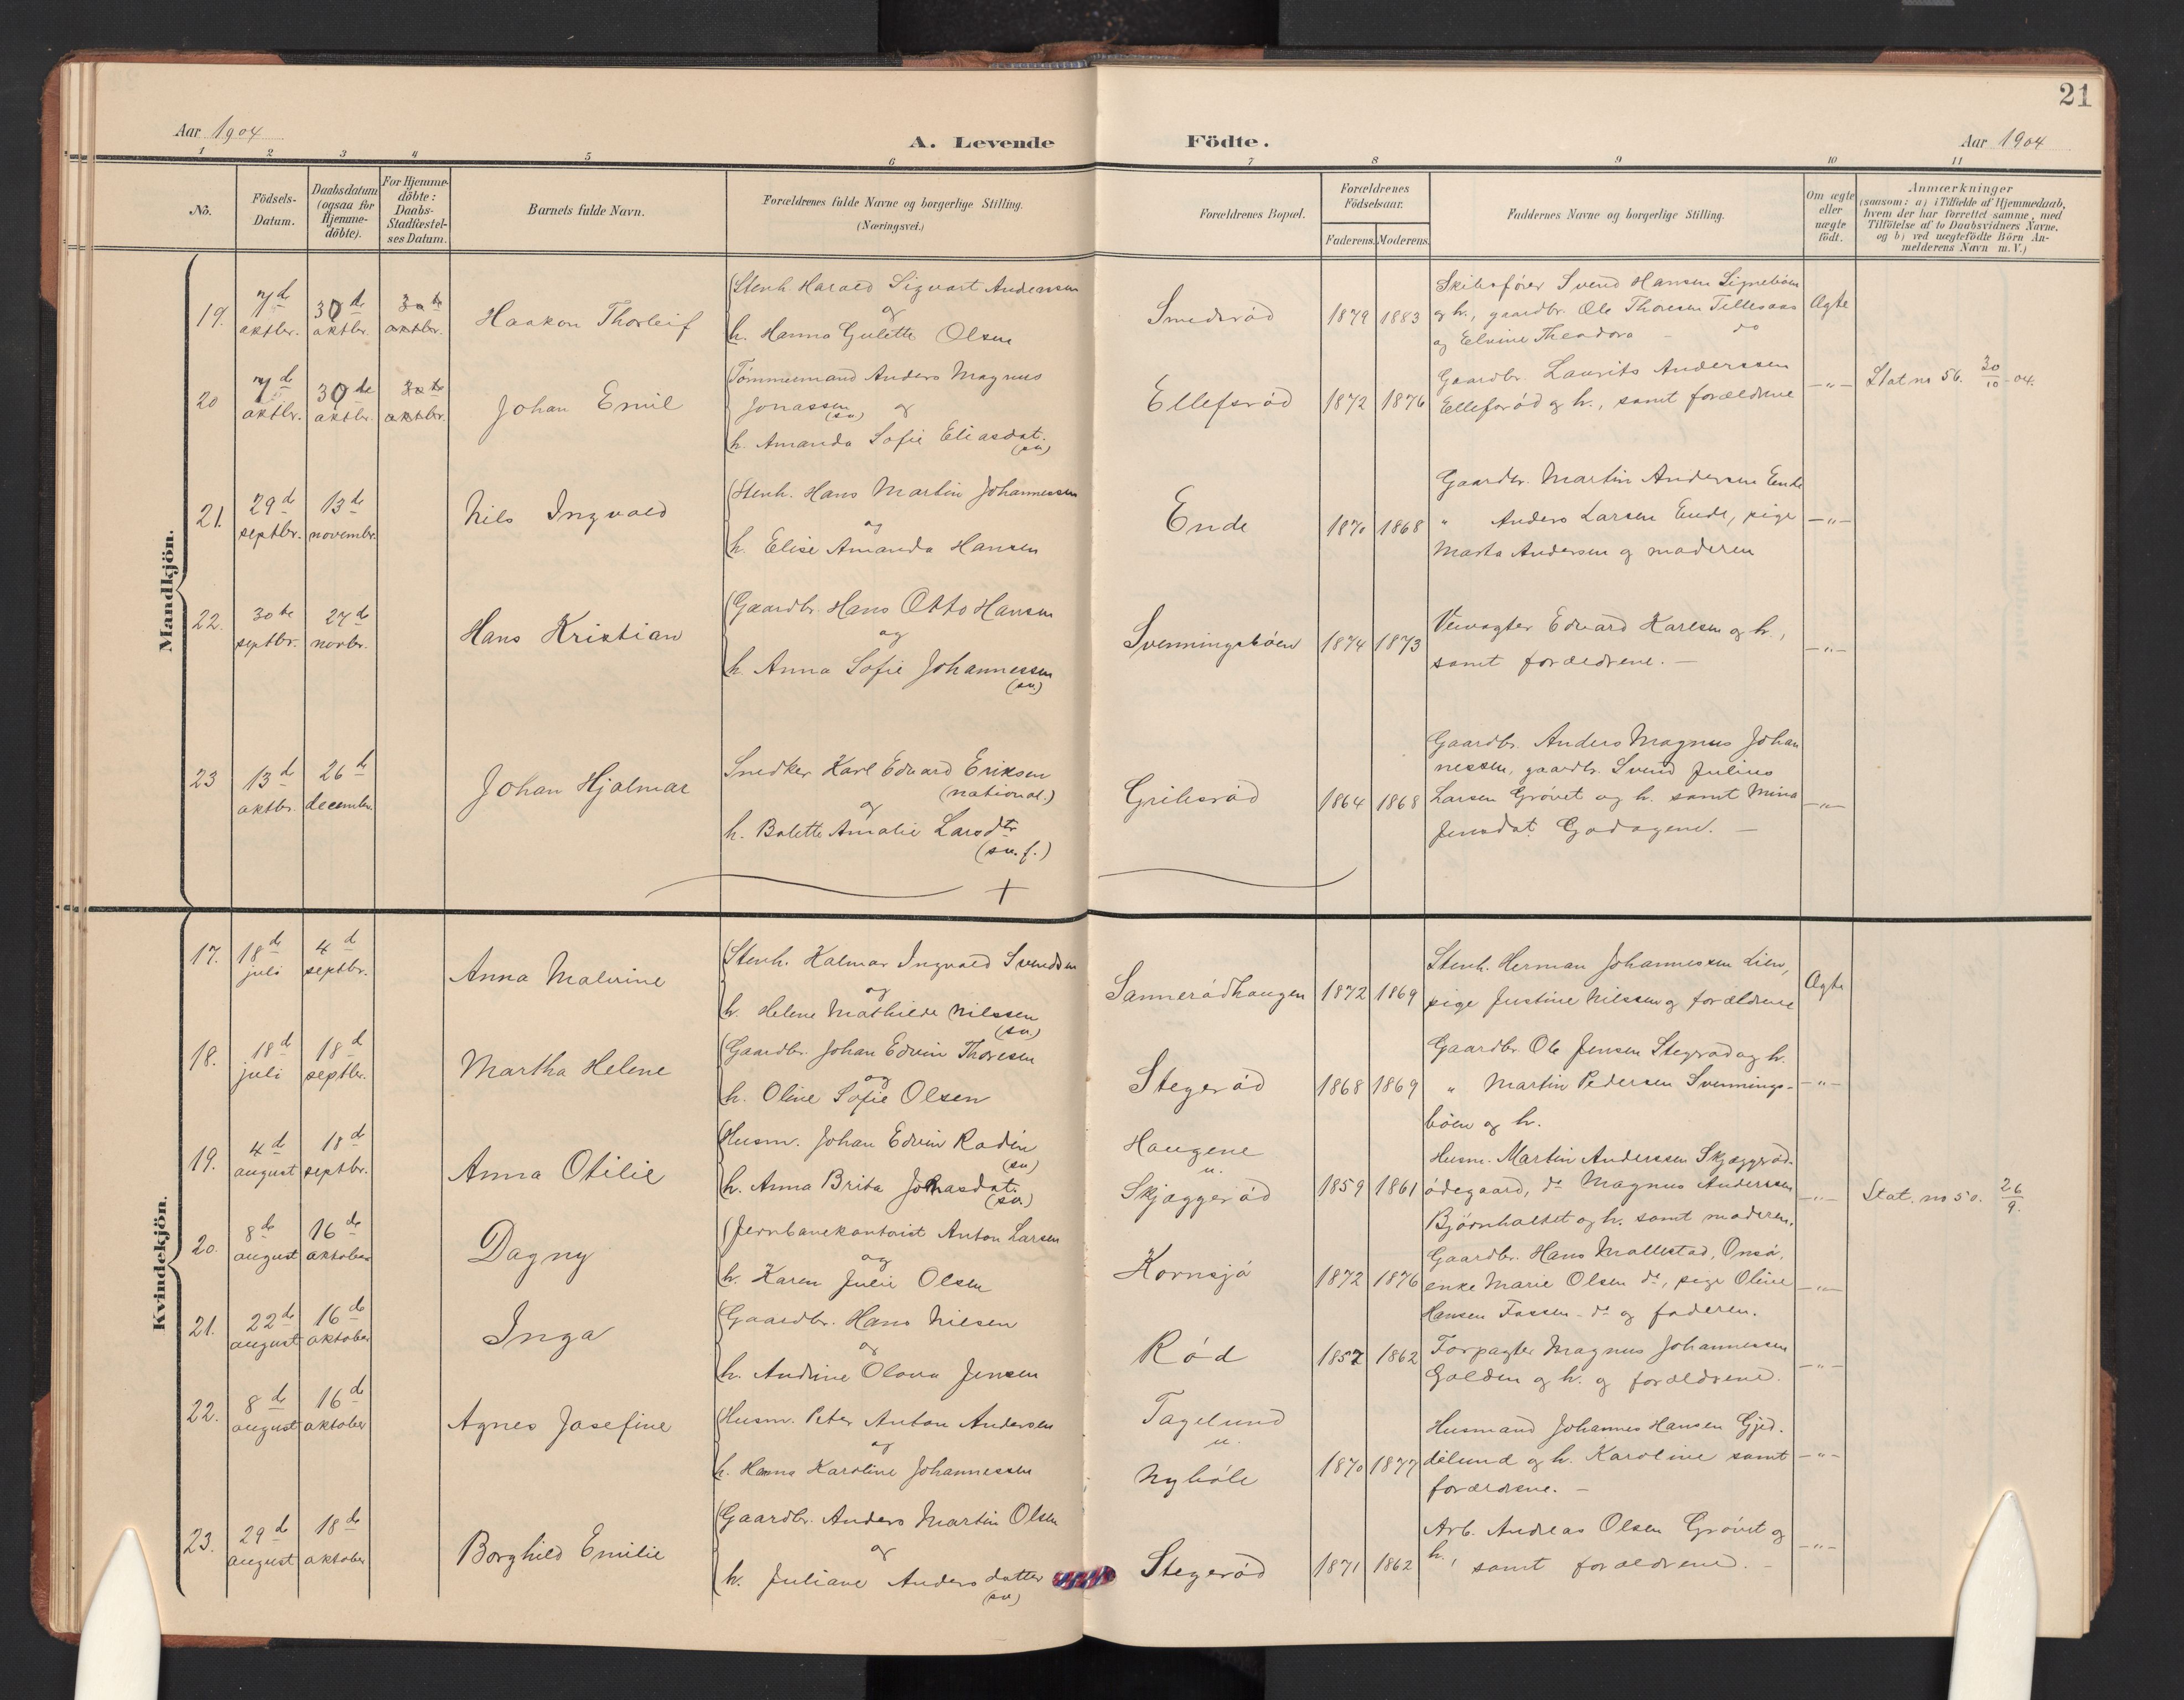 21
Aar 1904
A. Levende
Födte.
Aar 1904
1 2 3 4 5 6 7 8 9 10 11
No.
Födsels-
Datum.
Daabsdatum
(ogsaa for
Hjemme-
döbte).
For Hjemme-
döbte:
Daabs-
Stadfæstel-
ses Datum.
Barnets fulde Navn.
Forældrenes fulde Navne og borgerlige Stilling.
(Næringsvei.)
Forældrenes Bopæl.
Forældrenes
Födselsaar.
Faderens. Moderens.
Faddernes Navne og borgerlige Stilling.
Om ægte
eller
uægte
födt.
Anmærkninger
(saasom: a) i Tilfælde af Hjemmedaab,
hvem der har forrettet samme, med
Tilföielse af to Daabsvidners Navne,
og b) ved uægtefödte Börn An-
melderens Navn m. V.)
Mandkjön.
19.
7de
oktbr.
30de
oktbr.
30te
oktbr.
Haakon Thorleif
Stenh. Harald Sigvart Andersen
og
h. Hanna Gulette Olsen
Smedsröd
1879 1883
Skibsförer Svend Hansen Signeböen
og h., gaardbr. Ole Thoresen Tillesaas
og Elvine Theodora do
Ægte
20
7de
oktbr.
30de
oktbr.
30te
oktbr.
Johan Emil
Tömmermand Anders Magnus
Jonassen (sv.) og
h. Amanda Sofie Eliasdat.
(sv.)
Ellefsröd
1872 1876
Gaardbr. Laurits Anderssen
Ellefsröd og h., samt forældrene
—"—
Stat no 56. 30/10 - 04.
21.
29de
septbr.
13de
novembr.
Nils Ingvald
Stenh. Hans Martin Johannessen
og
h. Elise Amanda Hansen
Ende
1870 1868
Gaardbr. Martin Andersen Ende
" Anders Larsen Ende, pige
Marta Andersen og moderen
—"—
22.
30te
septbr.
27de
novbr.
Hans Kristian
Gaardbr. Hans Otto Hansen
og
h. Anna Sofie Johannessen
(sv.)
Svenningsböen
1874 1873
Veivogter Edvard Karlsen og h.,
samt forældrene. —
—"—
23
13de
oktbr.
26de
decembr.
Johan Hjalmar
Snedker Karl Edvard Eriksen
(national.)
og
h. Bolette Amalie Larsdtr
(sv. f.)
Gribsröd
1864 1868
Gaardbr. Anders Magnus Johan
nessen, gaardbr. Svend Julius
Larsen Grövet og h. samt Mina
Jensdat. Godagend. —
—"—
Kvindekjön.
17.
18de
juli
4de
septbr.
Anna Malvine
Stenh. Kalmar Ingvald Svendsen
og
h. Helene Mathilde Nilssen
(sv.)
Sanneródhaugen
1872 1869
Stenh. Herman Johannessen Lien,
pige Justine Nilssen og forældrene
Ægte
18.
18de
juli
18de
septbr.
Martha Helene
Gaardbr. Johan Edvin Thoresen
og
h. Oline Sofie Olsen
Stegeröd
1868 1869
Gaardbr. Ole Jensen Stegeröd og h.
" Martin Pedersen Svennings-
böen og h.
—"—
19.
4de
august
18de
septbr.
Anna Otilie
Husm. Johan Edvin Rodin
(sv.)
h. Anna Brita Johasdat.
(sv.)
Haugene
u.
Skjæggeröd
1859 1861
Husm. Martin Anderssen Skjæggeröd-
ödegaard, do Magnus Anderssen
Björnholtet og h. samt moderen.
—"—
Stat. no 50. 26/9.
20.
8de
august
16de
oktober
Dagny
Jernbanekontorist Anton Larsen
og
h. Karen Julie Olsen
Kornsjö
1872 1876
Gaardbr. Hans Mallestad, Onsö,
enke Marie Olsen do, pige Oline
Hansen Fossen - do og faderen.
—"—
21.
22de
august
16de
oktober
Inga
Gaardbr. Hans Nilsen
og
h. Andrine Olava Jensen
Röd
1857 1862
Forpagter Magnus Johannessen
Golden og h. og forældrene.
—"—
22.
8de
august
16de
oktober
Agnes Josefine
Husm. Peter Anton Andersen
og
h. Hanna Karoline Johannessen
Tagelund
u.
Nyböle
1870 1877
Husmand Johannes Hansen Gjed-
delund og h. Karoline samt
forældrene. —
—"—
23.
29de
august
18de
oktober
Borghild Emilie
Gaardbr. Anders Martin Olsen
og
h. Juliane Andersdatter
(sv.)
Stegeröd
1871 1862
Arb. Andreas Olsen Grövet og
h., samt forældrene. —
—"—